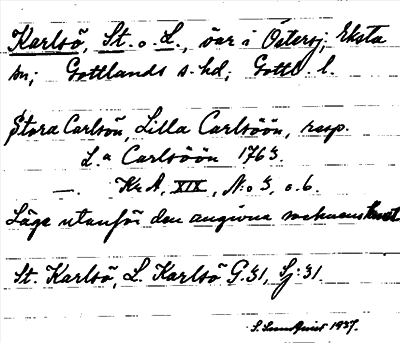 Karlsö, St. o L., öar i Östersj; Eksta
sn; Gottlands s. hd; Gottl. l.
Stora Carlsön, Lilla Carlsöön, resp.
L:a Carlsöön 1763.
—. KrA, XIX, N:o 3, o. 6.
Läge utanför den angivna socknens kust
St. Karlsö, L. Karlsö G. 31, Sj: 31
S. Sundquist 1937.